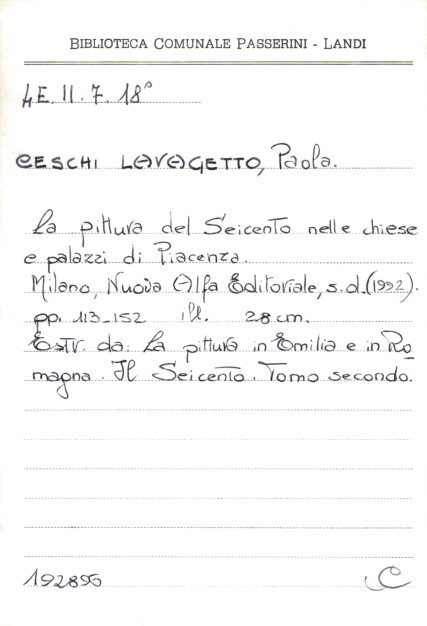 BIBLIOTECA COMUNALE PASSERINI - LANDI
4E. II. 7. 18°
CESCHI LAVAGETTO, Paola.
La pittura del Seicento nelle chiese
e palazzi di Piacenza.
Milano, Nuova Alfa Editoriale, s.d. (1992).
pp. 113-152 ill. 28 cm.
Estr. da: La pittura in Emilia e in Ro
magna. Il Seicento. Tomo secondo.
192896 C